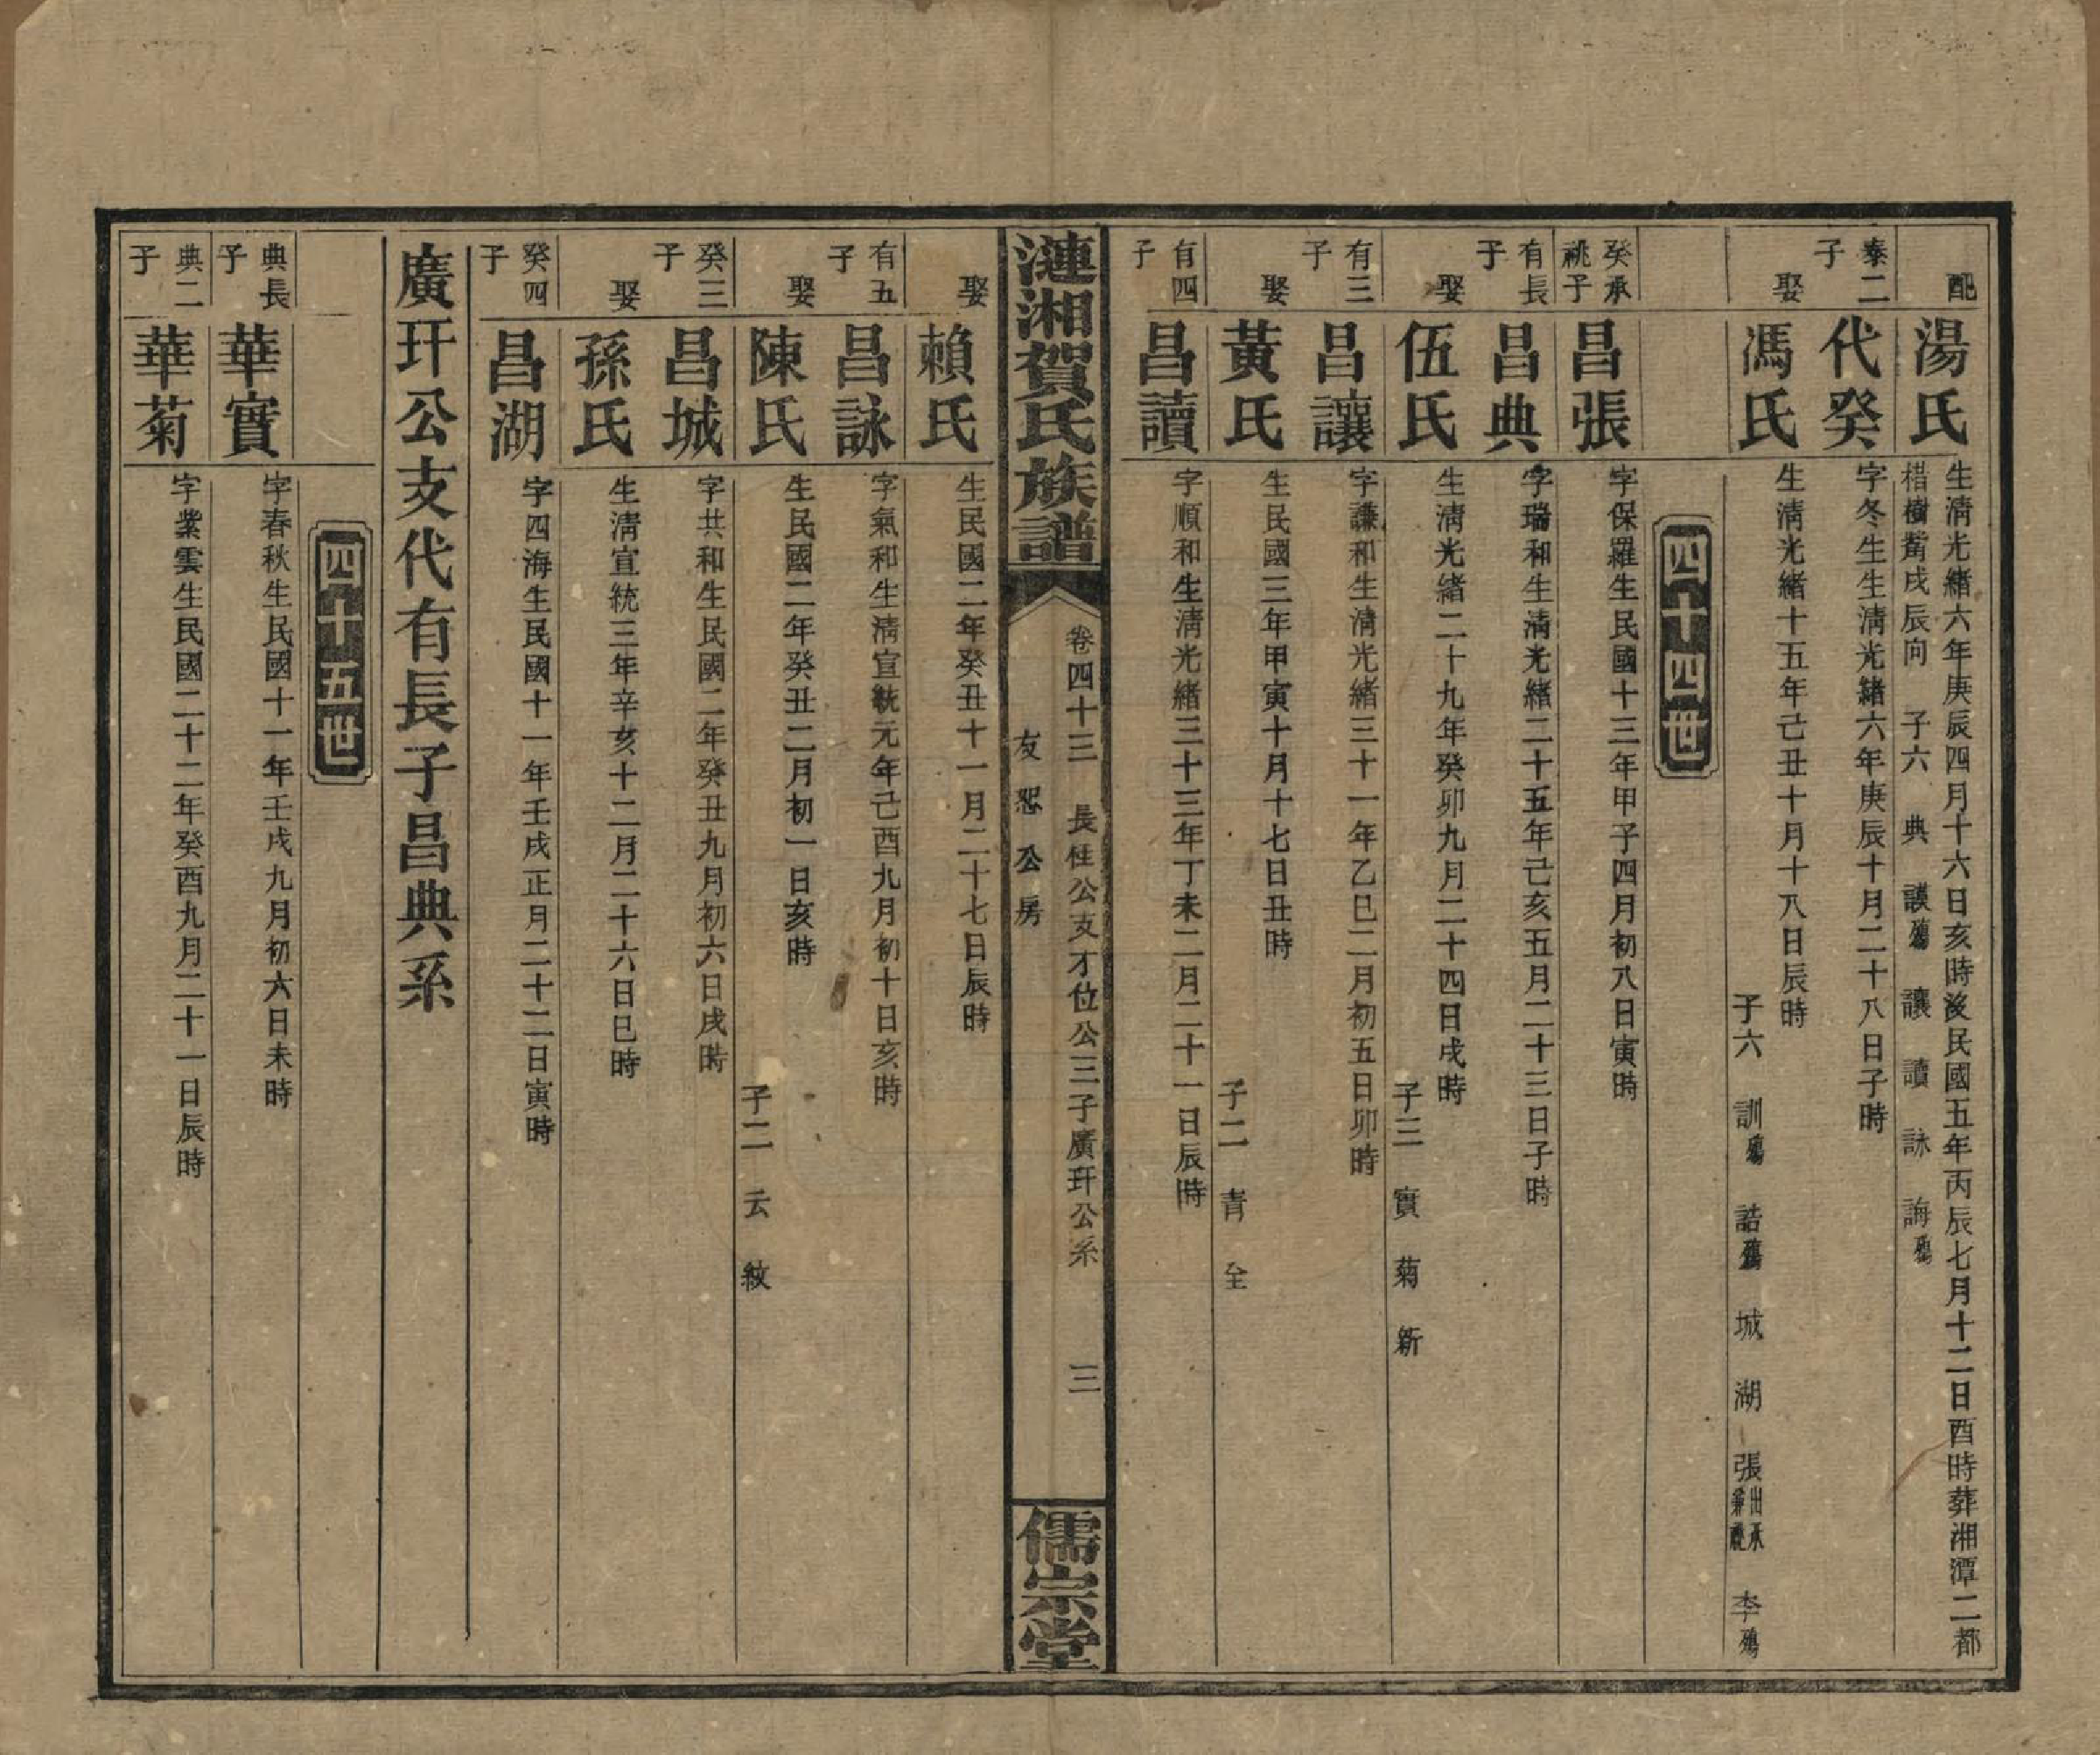 配 湯氏 生清光緒六年庚辰四月十六日亥時沒民國五年丙辰七月十二日酉時葬湘潭二都
樹觜戌辰向 子六 典 謨殤 讓 讀 詠 誨殤
泰二子 代癸 字冬生生清光緒六年庚辰十月二十八日子時
娶 馮氏 生清光緒十五年己丑十月十八日辰時
子六 訓殤 誥殤 城 湖 張出承兼祧 李殤
四十四世
癸承祧子 昌張 字保羅生民國十三年甲子四月初八日寅時
有長子 昌典 字瑞和生清光緒二十五年己亥五月二十三日子時
娶 伍氏 生清光緒二十九年癸卯九月二十四日戌時
子三 實 菊 新
有三子 昌讓 字謙和生清光緒三十一年乙巳二月初五日卯時
娶 黃氏 生民國三年甲寅十月十七日丑時
子二 青 全
有四子 昌讀 字順和生清光緒三十三年丁未二月二十一日辰時
漣湘賀氏族譜
卷四十三 長任公支才位公三子廣玕公系 三
友恕公房
儒宗堂
娶 賴氏 生民國二年癸丑十一月二十七日辰時
有五子 昌詠 字氣和生清宣統元年己酉九月初十日亥時
娶 陳氏 生民國二年癸丑二月初一日亥時
子二 云 紋
癸三子 昌城 字共和生民國二年癸丑九月初六日戌時
娶 孫氏 生清宣統三年辛亥十二月二十六日巳時
癸四子 昌湖 字四海生民國十一年壬戌正月二十二日寅時
廣玕公支代有長子昌典系
四十五世
典長子 華實 字春秋生民國十一年壬戌九月初六日未時
典二子 華菊 字業雲生民國二十二年癸酉九月二十一日辰時